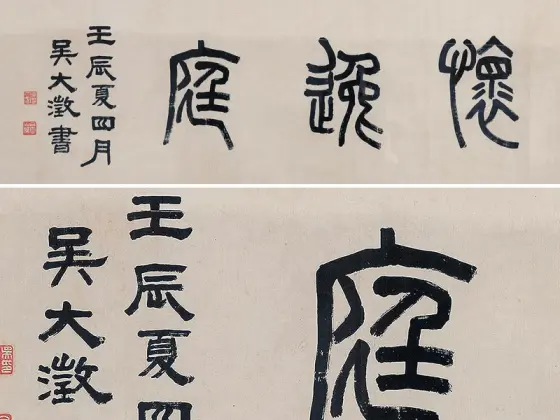 懷逸庭
壬辰夏四月
吳大澂書
庭
壬辰夏四
吳大澂